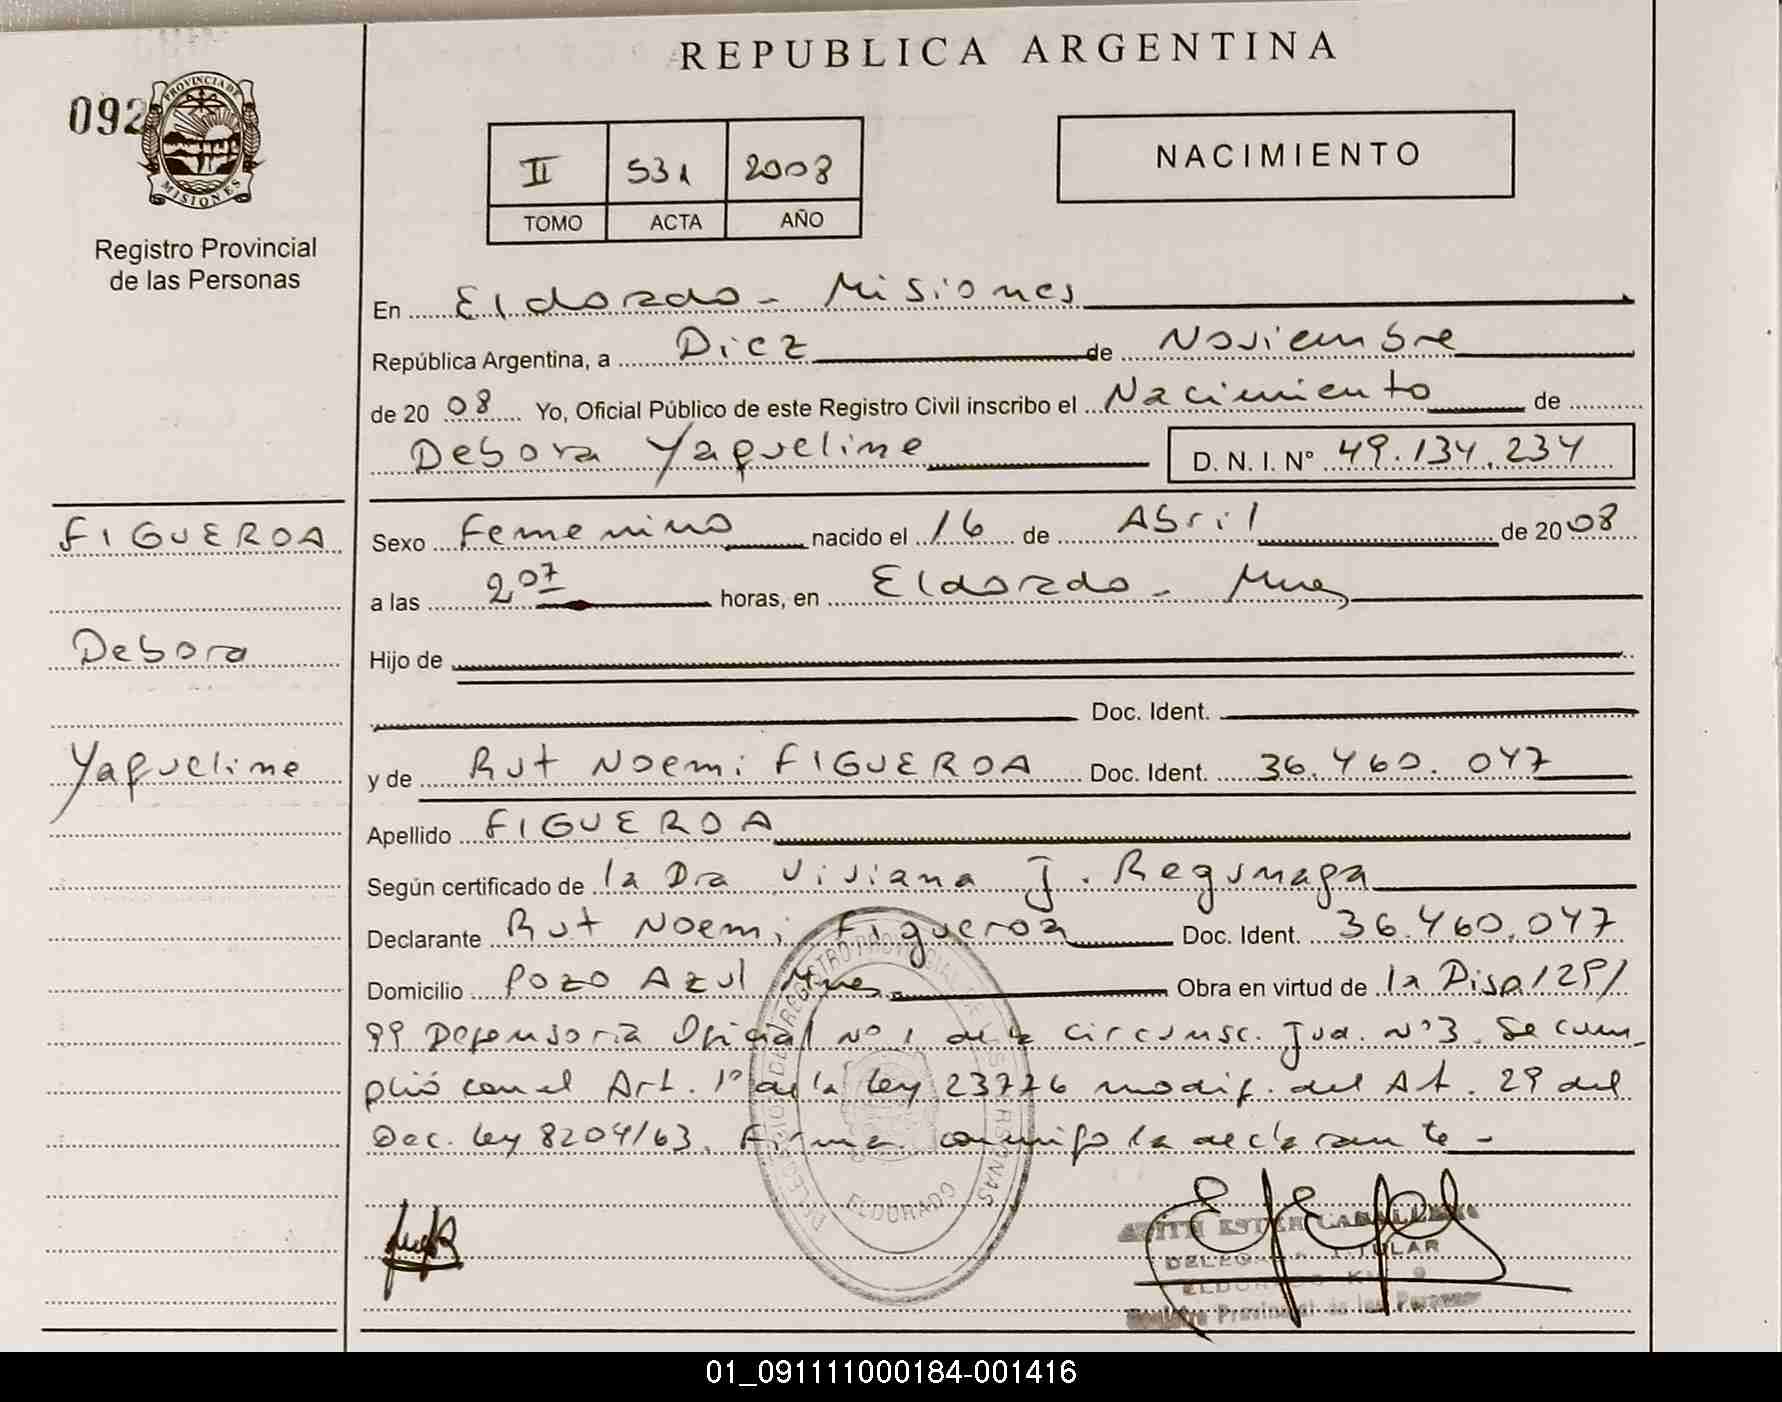 REPUBLICA ARGENTINA
092
PROVINCIA DE
MISIONES
Registro Provincial
de las Personas
II 531 2008
TOMO ACTA AÑO
NACIMIENTO
En Eldorado - Misiones
República Argentina, a Diez de Noviembre
de 20 08 Yo, Oficial Público de este Registro Civil inscribo el Nacimiento de
Debora Yaqueline D. N. I. N° 49.134.234
FIGUEROA
Debora
Yaqueline
Sexo Femenino nacido el 16 de Abril de 20 08
a las 2 07 horas, en Eldorado - Mnes
Hijo de
Doc. Ident.
y de Rut Noemi FIGUEROA Doc. Ident. 36.460.047
Apellido FIGUEROA
Según certificado de la Dra Viviana J.
Declarante Rut Noemi Figueroa Doc. Ident. 36.460.047
Domicilio Pozo Azul Mnes Obra en virtud de la Disp 129/
99 Defensoria Oficial N° 1 de la circunsc. Jud. N° 3. Se cum-
plió con el Art. 1° de la ley 23776 modif. del At. 29 del
Dec. ley 8204/63. Firma conmigo la declarante -
DELEGACION DEL REGISTRO PROVINCIAL DE LAS PERSONAS
ELDORADO
EDITH ESTER CABALLERO
DELEGADA TITULAR
ELDORADO KM. 9
Registro Provincial de las Personas
01_091111000184-001416